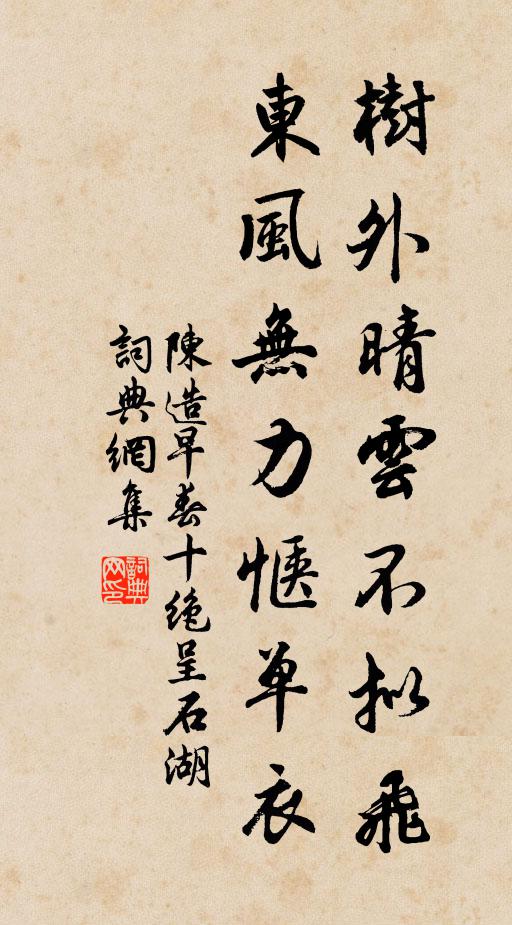 樹外晴雲不拟飛
東風無力愜单衣
陳造早春十绝呈石湖
詞典網集
詞典
网印